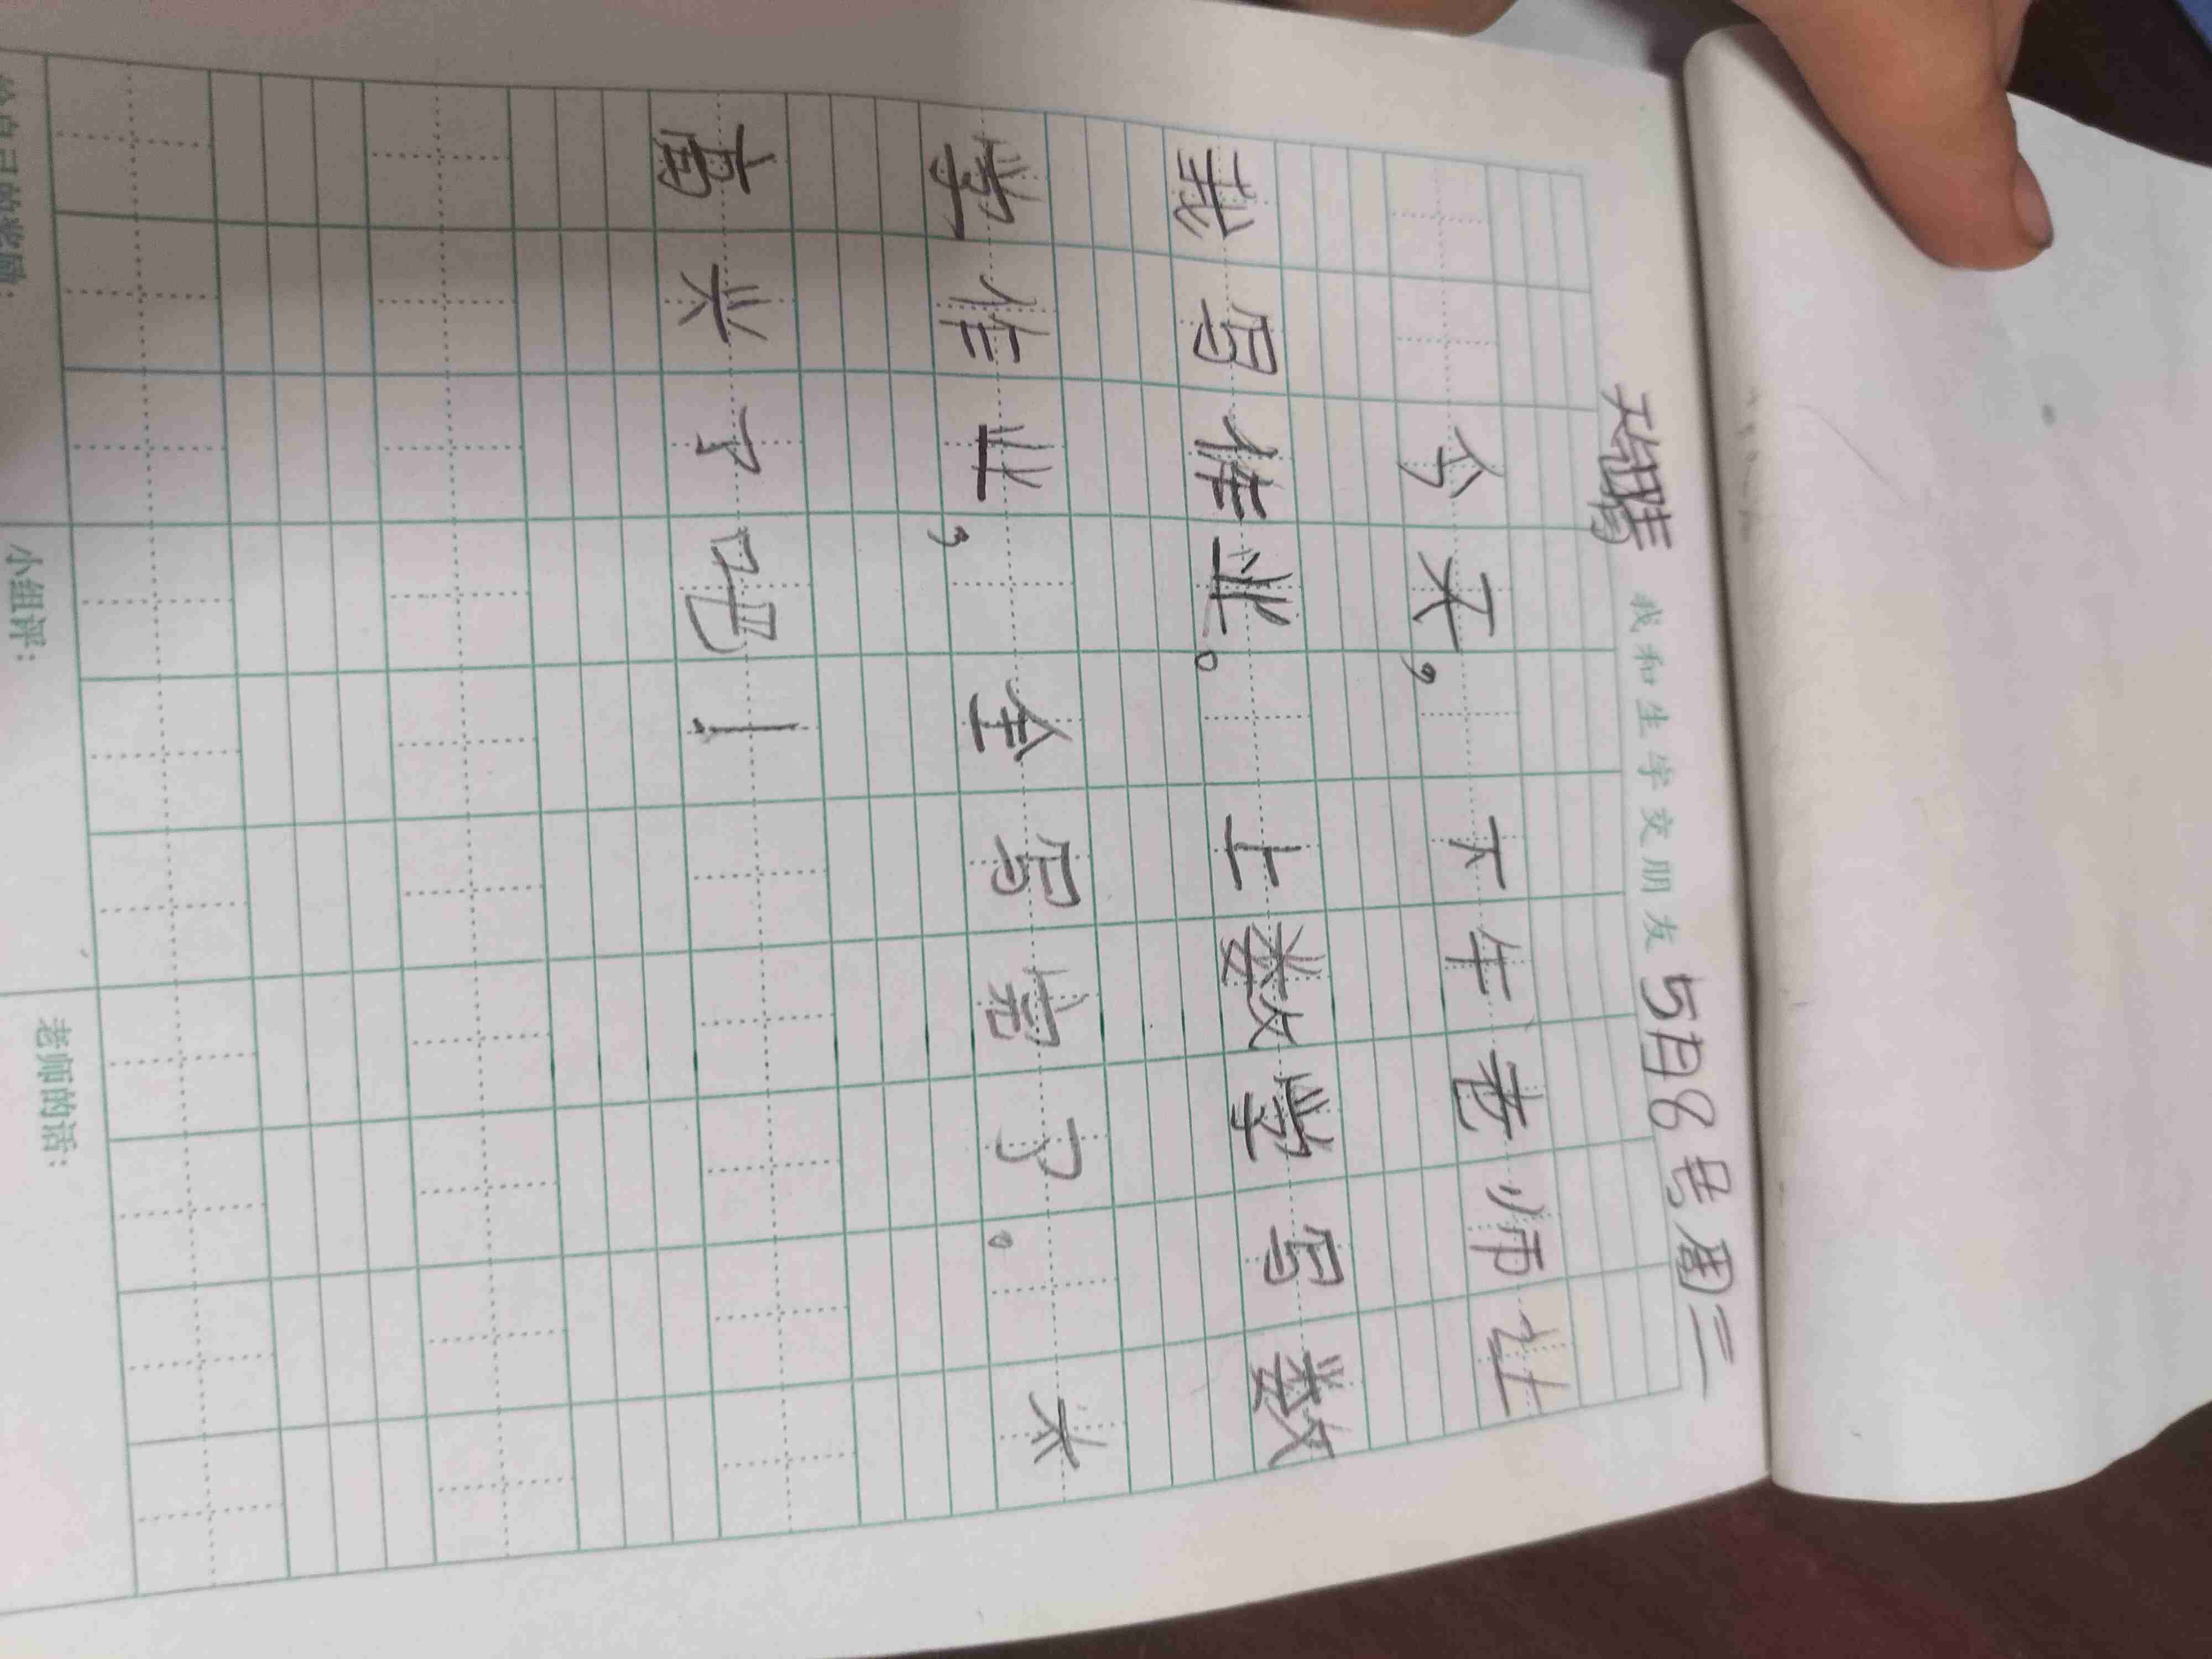 我和生字交朋友 5月8号周三
今天，下午老师让
我写作业。上数学写数
学作业，全写完了。太
高兴了吧！
小组评：
老师的话：